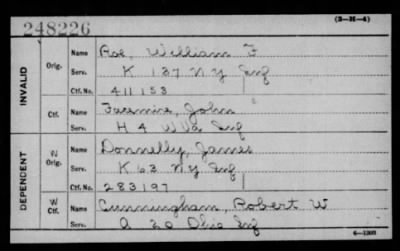 248226
(3-H-4)
INVALID
Orig.
Name Roe, William F
Serv. K 137 N Y Inf
Ctf. No. 411153
Ctf.
Name Facemire, John
Serv. H 4 W Va Inf
DEPENDENT
W Orig.
Name Donnelly, James
Serv. K 63 N Y Inf
Ctf. No. 283197
W Ctf.
Name Cunningham, Robert W
Serv. A 20 Ohio Inf